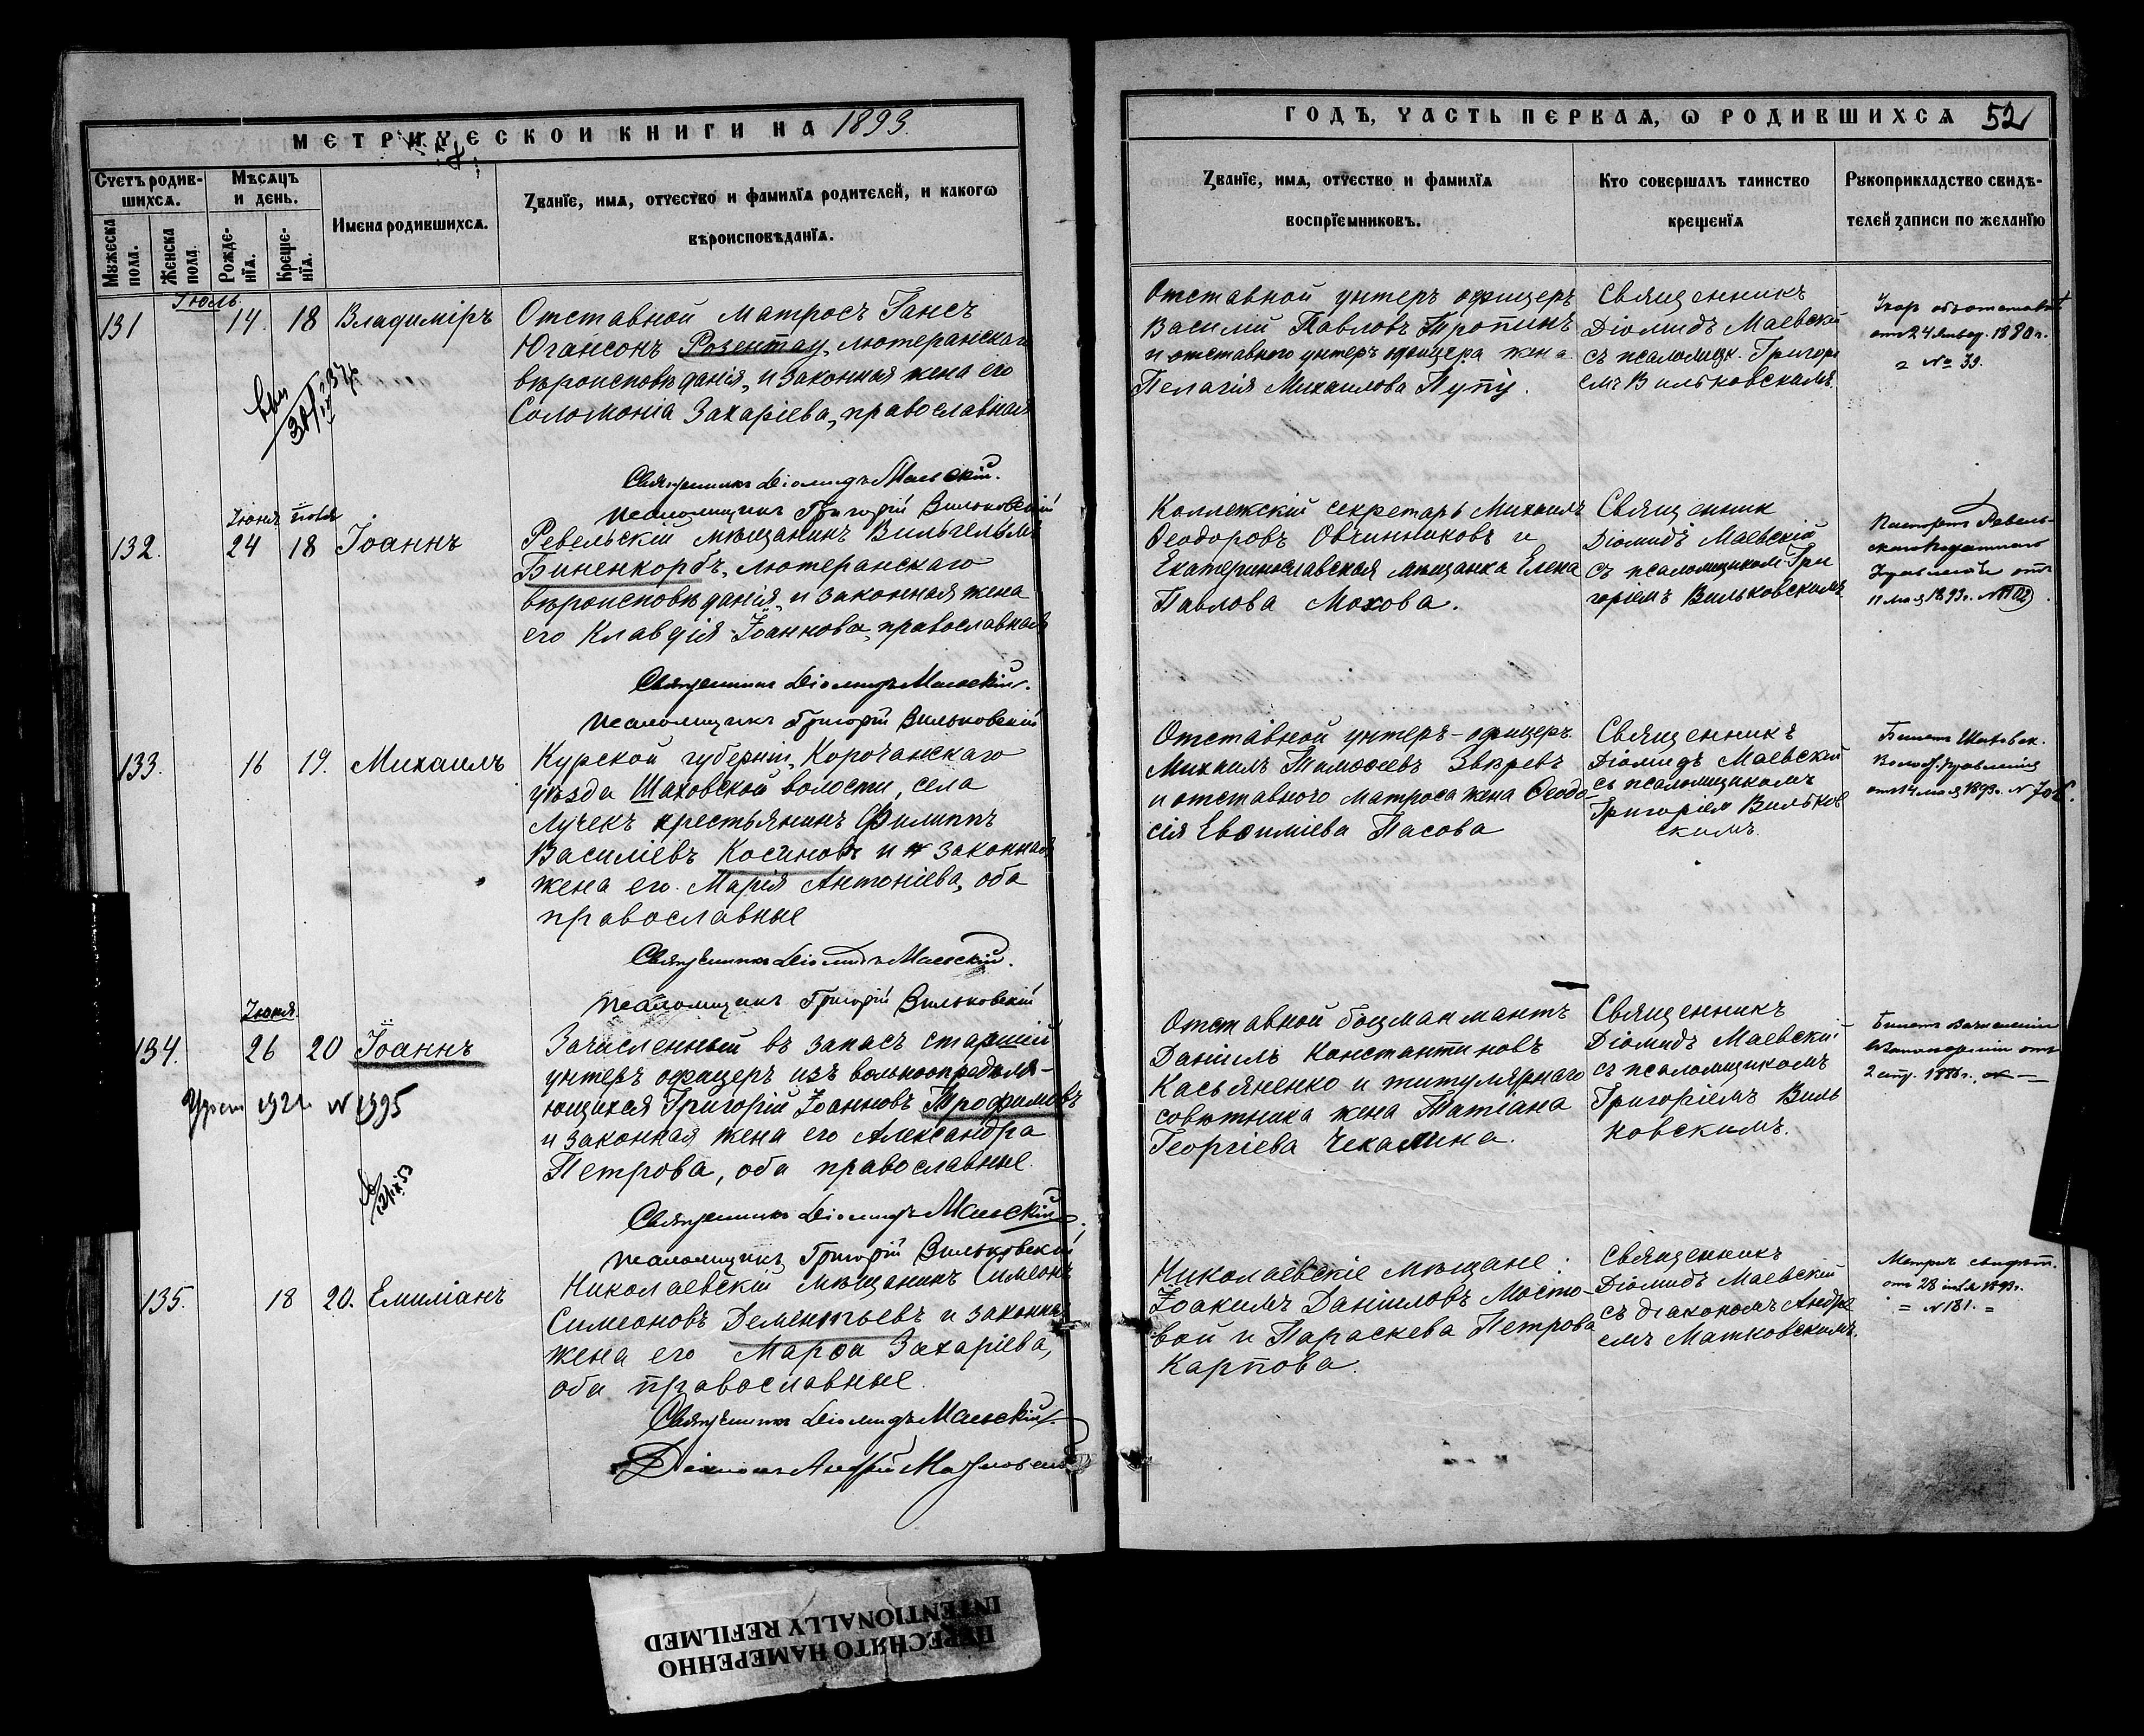 МЕТРИЧЕСКОЙ КНИГИ НА 1893.
Счетъ родив-
шихся.
Мѣсяцъ
и день.
Мужеска
пола.
Женска
пола.
Рожде-
нїя.
Креще-
нїя.
Имена родившихся.
Званїе, имя, отчество и фамилїя родителей, и какогѡ
вѣроисповѣданїя.
Іюль.
131 14. 18 Владиміръ
Отставной матросъ Гансъ
Югансонъ Розентау, лютеранскаго
вѣроисповѣданія, и законная жена его
Соломонія Захаріева, православная
Священникъ Діомидъ Маевскій.
Псаломщикъ Григорій Вильковскій
Іюня Іюля
132. 24 18 Іоаннъ
Ревельскій мѣщанинъ Вильгельмъ
Биненкорбъ, лютеранскаго
вѣроисповѣданія, и законная жена
его Клавдія Іоаннова, православная
Священникъ Діомидъ Маевскій.
Псаломщикъ Григорій Вильковскій
133. 16 19. Михаилъ
Курской губерніи, Корочанскаго
уѣзда Шаховской волости, села
Лучекъ крестьянинъ Филиппъ
Василіевъ Косиновъ и законная
жена его Марія Антоніева, оба
православные
Священникъ Діомидъ Маевскій.
Псаломщикъ Григорій Вильковскій
Іюня.
134. 26 20 Іоаннъ
1921 N 1395
Зачисленный въ запасъ старшій
унтеръ офицеръ изъ вольноопредѣля-
ющихся Григорій Іоанновъ Трофимовъ
и законная жена его Александра
Петрова, оба православные.
Священникъ Діомидъ Маевскій.
Псаломщикъ Григорій Вильковскій
135. 18 20. Емиліанъ
Николаевскій мѣщанинъ Симеонъ
Симеоновъ Дементьевъ и законная
жена его Марѳа Захаріева,
оба православные.
Священникъ Діомидъ Маевскій.
Діаконъ Андрей Матковскій
ГОДЪ, ЧАСТЬ ПЕРВАЯ, Ѡ РОДИВШИХСЯ 52
Званїе, имя, отчество и фамилїя
воспрїемниковъ.
Кто совершалъ таинство
крещенїя
Рукоприкладство свидѣ-
телей записи по желанїю
Отставной унтеръ офицеръ
Василій Павловъ Тропинъ
и отставного унтеръ офицера жена
Пелагія Михаилова Пупу.
Священникъ
Діомидъ Маевскій
съ псаломщ. Григорі
емъ Вильковскимъ.
от 24 Январ. 1880 г.
№ 39.
Коллежскій секретарь Михаилъ
Ѳеодоровъ Овчинниковъ и
Екатеринославская мѣщанка Елена
Павлова Мохова.
Священник
Діомидъ Маевскій
съ псаломщикомъ Гри
горіемъ Вильковскимъ
11 мая 1893 г. N 1102.
Отставной унтеръ-офицеръ
Михаилъ Тимоѳеевъ Звѣревъ
и отставного матроса жена Ѳеодо-
сія Евѳиміева Пасова
Священникъ
Діомидъ Маевскій
съ псаломщикомъ
Григоріем Вильков
скимъ.
Билетъ Шаховск.
Волост. Правленія
от 14 мая 1893 г. N 708.
Отставной боцманматъ
Даніилъ Константиновъ
Касьяненко и титулярнаго
совѣтника жена Татіана
Георгіева Чекалина.
Священникъ
Діомидъ Маевскій
съ псаломщикомъ
Григоріемъ Виль
ковскимъ.
Николаевскіе мѣщане:
Іоакимъ Даніиловъ Мосто-
вой и Параскева Петрова
Карпова.
Священникъ
Діомидъ Маевскій
съ діакономъ Андре
емъ Матковскимъ.
Метрич. свидѣт.
от 28 1893 г.
= N 181. =
ПЕРЕСНЯТО НАМЕРЕННО
INTENTIONALLY REFILMED